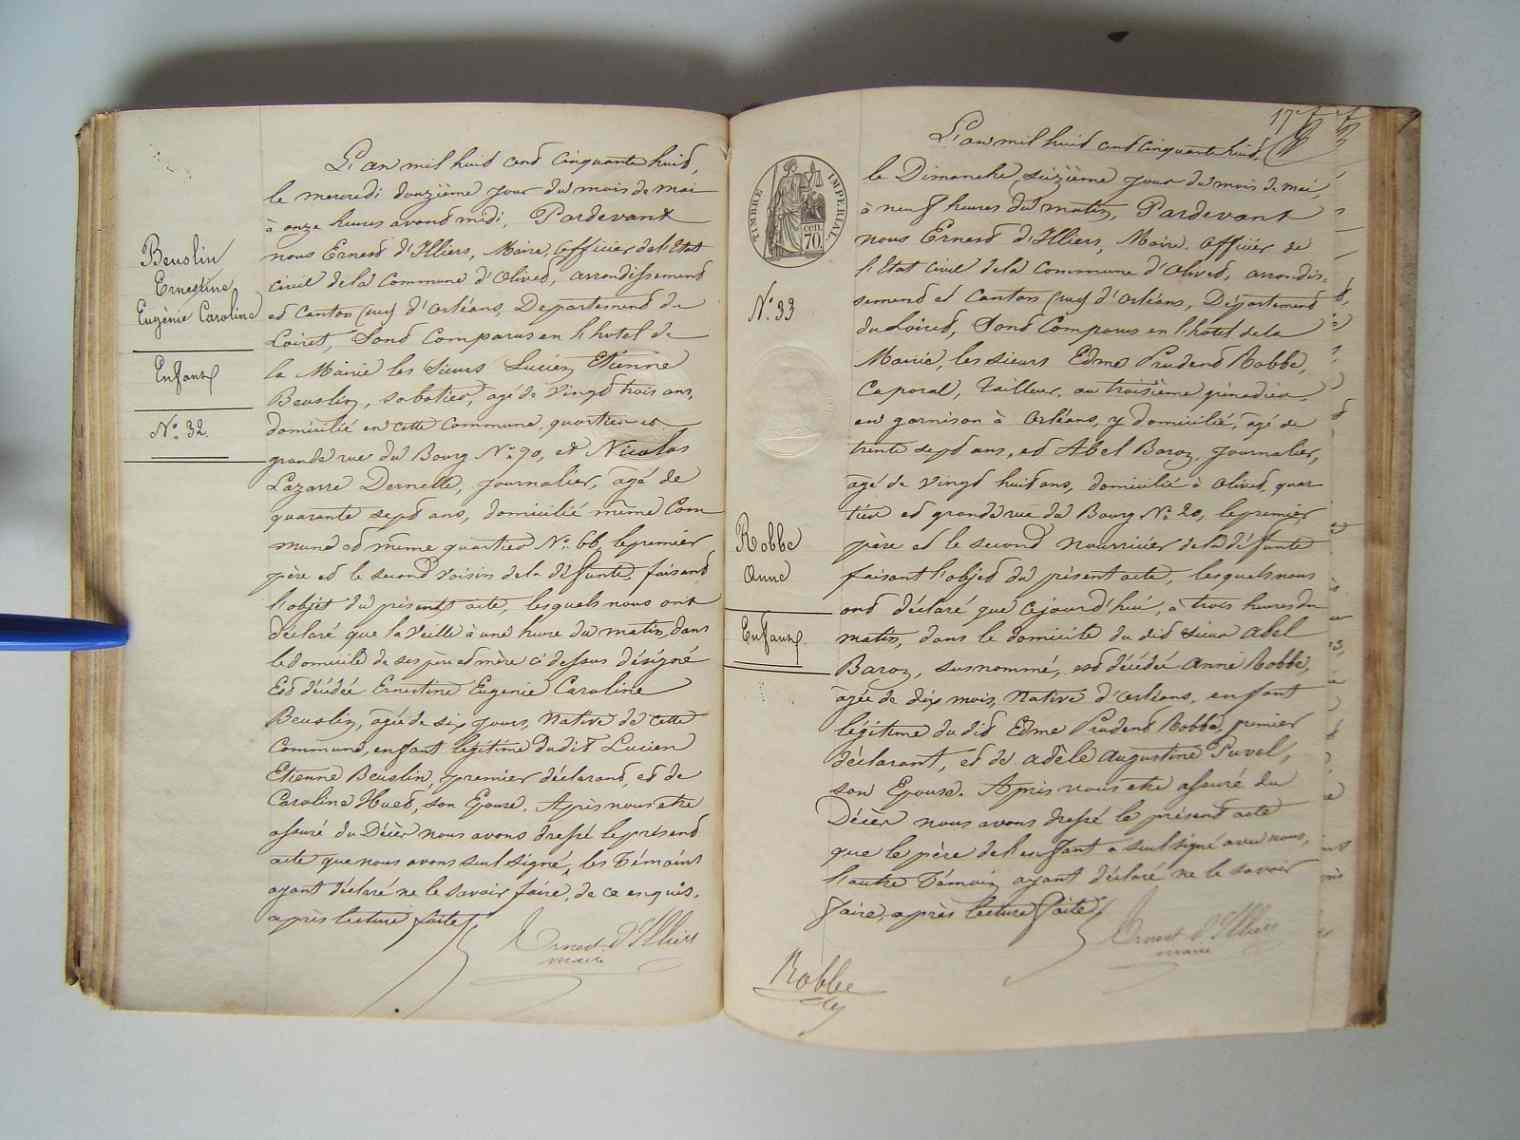 Beuslin
Ernestine
Eugénie Caroline
Enfant
N.º 32.
L'an mil huit cent cinquante huit,
le mercredi douzième jour du mois de mai
à onze heures avant midi, Pardevant
nous Ernest d'Illiers, Maire, officier de l'Etat
civil de la Commune d'Olivet, arrondissement
et Canton (sud) d'Orléans, Département du
Loiret, Sont Comparus en l'hotel de
la Mairie les Sieurs Lucien Etienne
Beuslin, sabotier, agé de vingt trois ans,
domicilié en cette Commune, quartier et
grande rue du Bourg N.º 70, et Nicolas
Lazarre Dernelle, journalier, agé de
quarante sept ans, domicilié même Com
mune et même quartier N.º 66, le premier
père et le second voisin de la défunte, faisant
l'objet du présent acte, lesquels nous ont
déclaré que la veille à une heure du matin, dans
le domicile de ses père et mère ci dessus désigné
Est décédée Ernestine Eugenie Caroline
Beuslin, agée de six jours, native de cette
Commune, enfant légitime dudit Lucien
Etienne Beuslin, premier déclarant, et de
Caroline Huet, son Epouse. Après nous etre
assuré du Décès nous avons dressé le présent
acte que nous avons seul signé, les Témoins
ayant déclaré ne le savoir faire, de ce enquis,
après lecture faite
Ernest d'Illiers
maire
17
TIMBRE IMPERIAL
CEN. 70
N.º 33
Robbe
Anne
Enfant
L'an mil huit cent cinquante huit,
le Dimanche seizième jour du mois de mai,
à neuf heures du matin, Pardevant
nous Ernest d'Illiers, Maire. officier de
l'Etat civil de la Commune d'Olivet, arrondis-
sement et Canton (sud) d'Orléans, Département
du Loiret, Sont Comparus en l'hotel de la
Mairie, les sieurs Edme Prudent Robbe,
Caporal, Tailleur, au troisième grenadier,
en garnison à Orléans, y domicilié, agé de
trente sept ans, et Abel Baron, journalier,
agé de vingt huit ans, domicilié à Olivet, quar
tier et grande rue du Bourg N.º 20, le premier
père et le second nourricier de la défunte
faisant l'objet du présent acte, lesquels nous
ont déclaré que cejourd'hui, à trois heures du
matin, dans le domicile du dit sieur Abel
Baron, susnommé, est décédée Anne Robbe,
agée de dix mois, Native d'orléans, enfant
légitime du dit Edme Prudent Robbe, premier
déclarant, et de adèle augustine
son Epouse. Après nous etre assuré du
Décès nous avons dressé le présent acte
que le père de l'enfant a seul signé avec nous,
l'autre Témoin ayant déclaré ne le savoir
faire, après lecture faite
Ernest d'Illiers
maire
Robbe